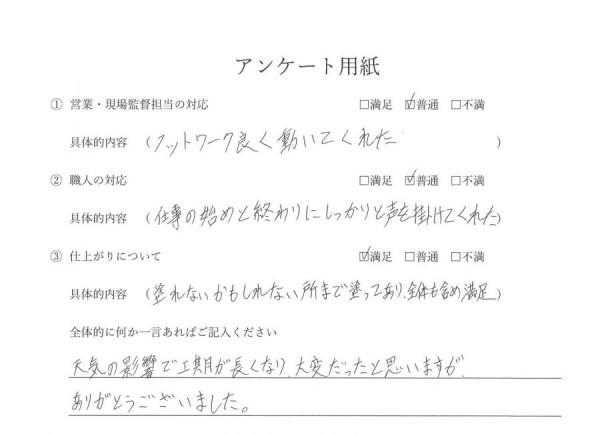 アンケート用紙
① 営業・現場監督担当の対応 □満足 ☑普通 □不満
具体的内容 (フットワーク良く動いてくれた)
② 職人の対応 □満足 ☑普通 □不満
具体的内容 (仕事の始めと終わりにしっかりと声を掛けてくれた)
③ 仕上がりについて ☑満足 □普通 □不満
具体的内容 (塗れないかもしれない所まで塗ってあり、全体も含め満足)
全体的に何か一言あればご記入ください
天気の影響で工期が長くなり、大変だったと思いますが、
ありがとうございました。